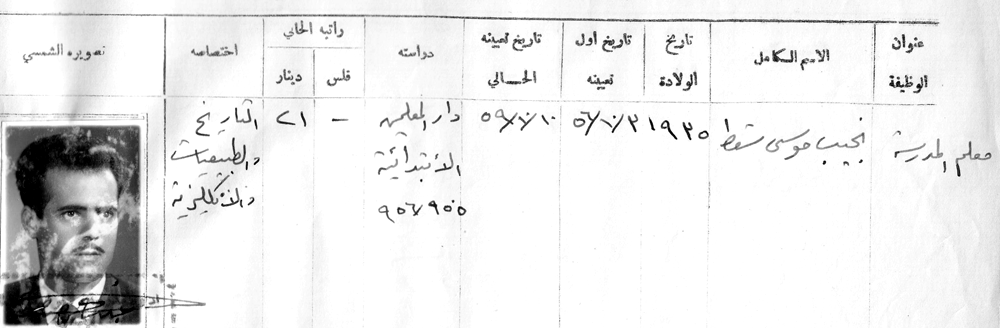 عنوان الوظيفة
الاسم الكامل
تاريخ الولادة
تاريخ اول تعيينه
تاريخ تعيينه الحالي
دراسته
راتبه الحالي
فلس
دينار
اختصاصه
تصويره الشمسي
معلم المدرسة
نجيب موسى
١٩٣٥
دار المعلمين
الابتدائية
٩٥٥/٩٥٦
-
٢١
التاريخ
والطبيعيات
والانكليزية